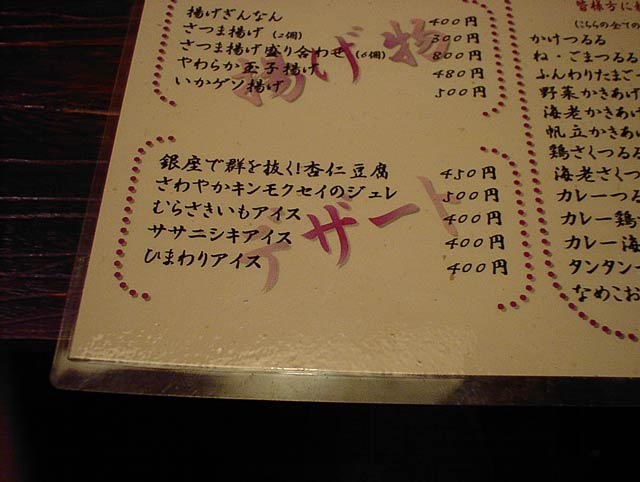 揚げ物
揚げぎんなん 400円
さつま揚げ(2個) 500円
さつま揚げ盛り合わせ(6個) 800円
やわらか玉子揚げ 480円
いかゲソ揚げ 500円
デザート
銀座で群を抜く!杏仁豆腐 450円
さわやかキンモクセイのジュレ 500円
むらさきいもアイス 400円
ササニシキアイス 400円
ひまわりアイス 400円
皆様方に
(こちらの全ての
かけつるる
ね・ごまつるる
ふんわりたまご
野菜かきあげ
海老かきあげ
帆立かきあ
鶏さくつる
海老さくつ
カレーつる
カレー鶏
カレー海
タンタン
なめこお